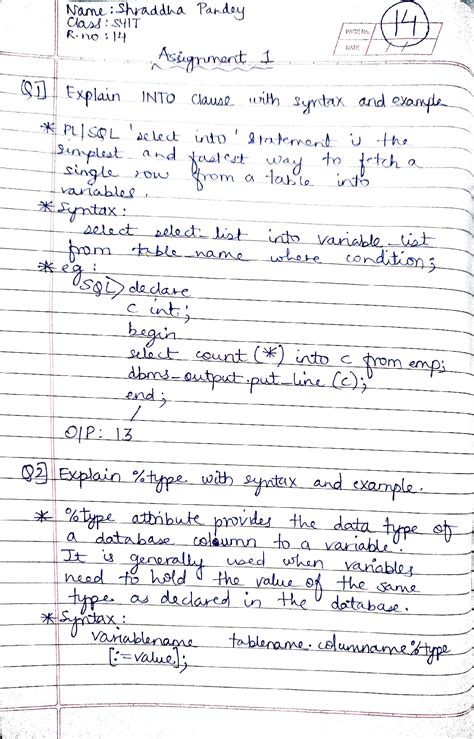 Name : Shraddha Pandey
Class : SYIT
R.no : 14
PAGE No.
DATE
14
Assignment 1
Q1] Explain INTO clause with syntax and example
* PL|SQL 'select into' statement is the
simplest and fastest way to fetch a
single row from a table into
variables.
* Syntax :
select select_list into variable_list
from table_name where condition;
* eg :
SQL> declare
c int;
begin
select count (*) into c from emp;
dbms_output.put_line (c);
end;
/
O/P : 13
Q2] Explain %type with syntax and example.
* %type attribute provides the data type of
a database column to a variable.
It is generally used when variables
need to hold the value of the same
type as declared in the database.
* Syntax :
variablename tablename.columnname%type
[:=value];